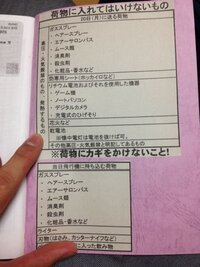 荷物に入れてはいけないもの
20日(月)に送る荷物
高圧・火気類
ガススプレー
・ヘアースプレー
・エアーサロンパス
・ムース類
・消臭剤
・殺虫剤
・化粧品・香水など
防寒用シート(ホッカイロなど)
リチウム電池およびそれを使用した機器
・ゲーム機
・ノートパソコン
・デジタルカメラ
・充電式のひげそり
花火など
乾電池
※懐中電灯は電池を抜けば可。
その他高圧・火気厳禁と明記してあるもの
※荷物にカギをかけないこと!
当日飛行機に持ち込む荷物
ガススプレー
・ヘアースプレー
・エアーサロンパス
・ムース類
・消臭剤
・殺虫剤
・化粧品・香水など
ライター
刃物(はさみ、カッターナイフなど)
に入った飲み物